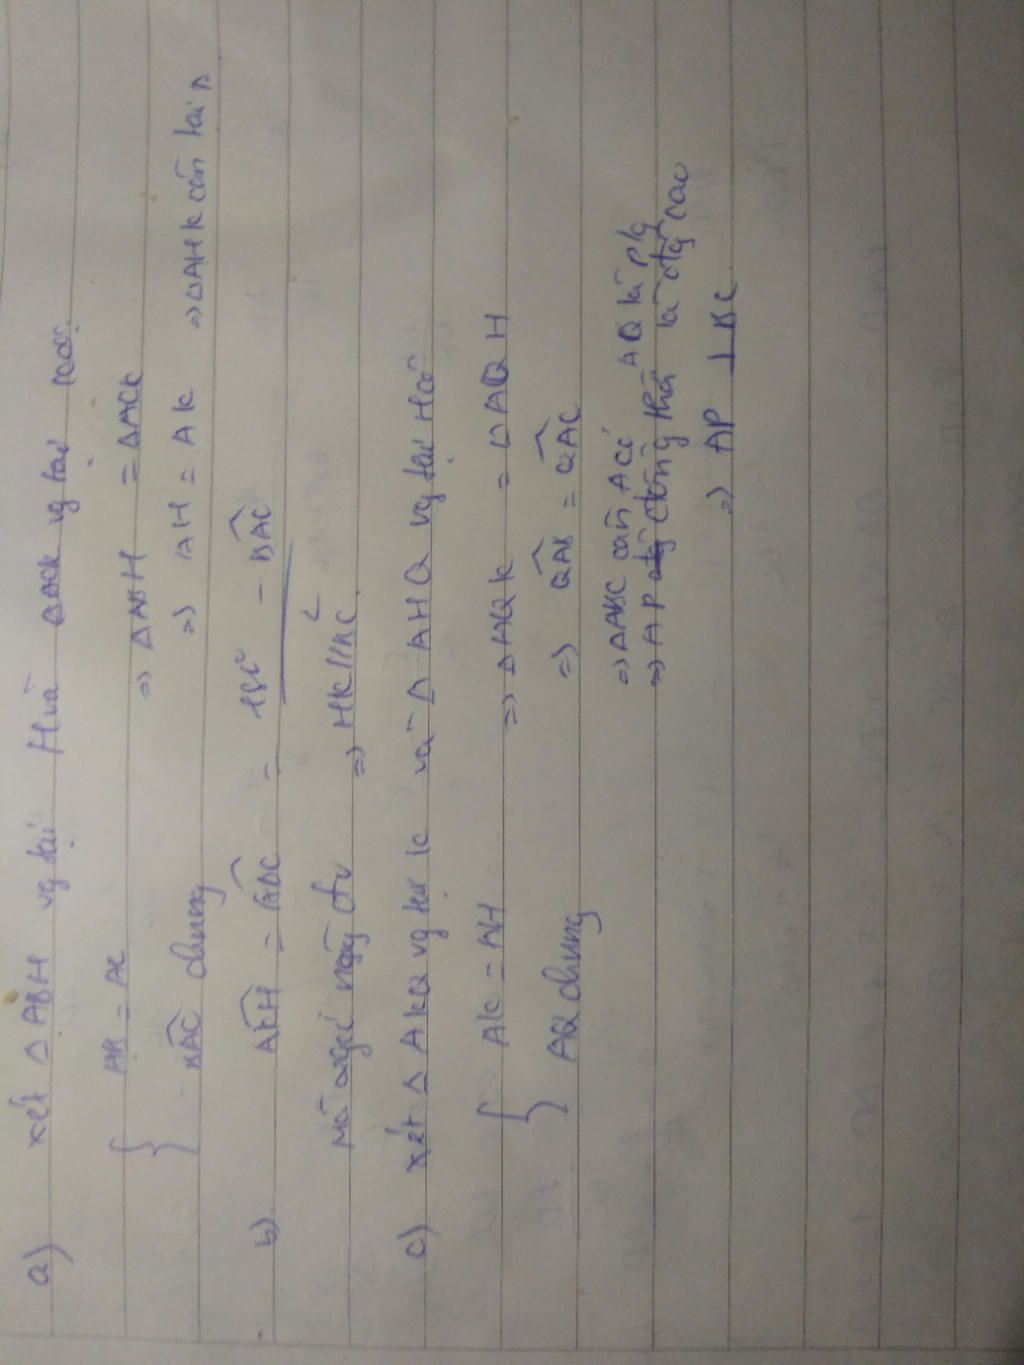 a) xét Δ ABH vg tại H và ΔACK vg tại K có:
{ AB = AC
BAC chung
=> ΔABH = ΔACK
=> AH = AK => ΔAHK cân tại A
b) AKH = ABC = 180° - BAC
Mà 2 góc này đv => HK//BC.
c) xét Δ AKQ vg tại K và Δ AHQ vg tại H có:
{ AK = AH
AQ chung
=> ΔAQK = ΔAQH
=> QAB = QAC
=> ΔABC cân A có AQ là p/g
=> AP đồng thời là đg cao
=> AP ⊥ BC